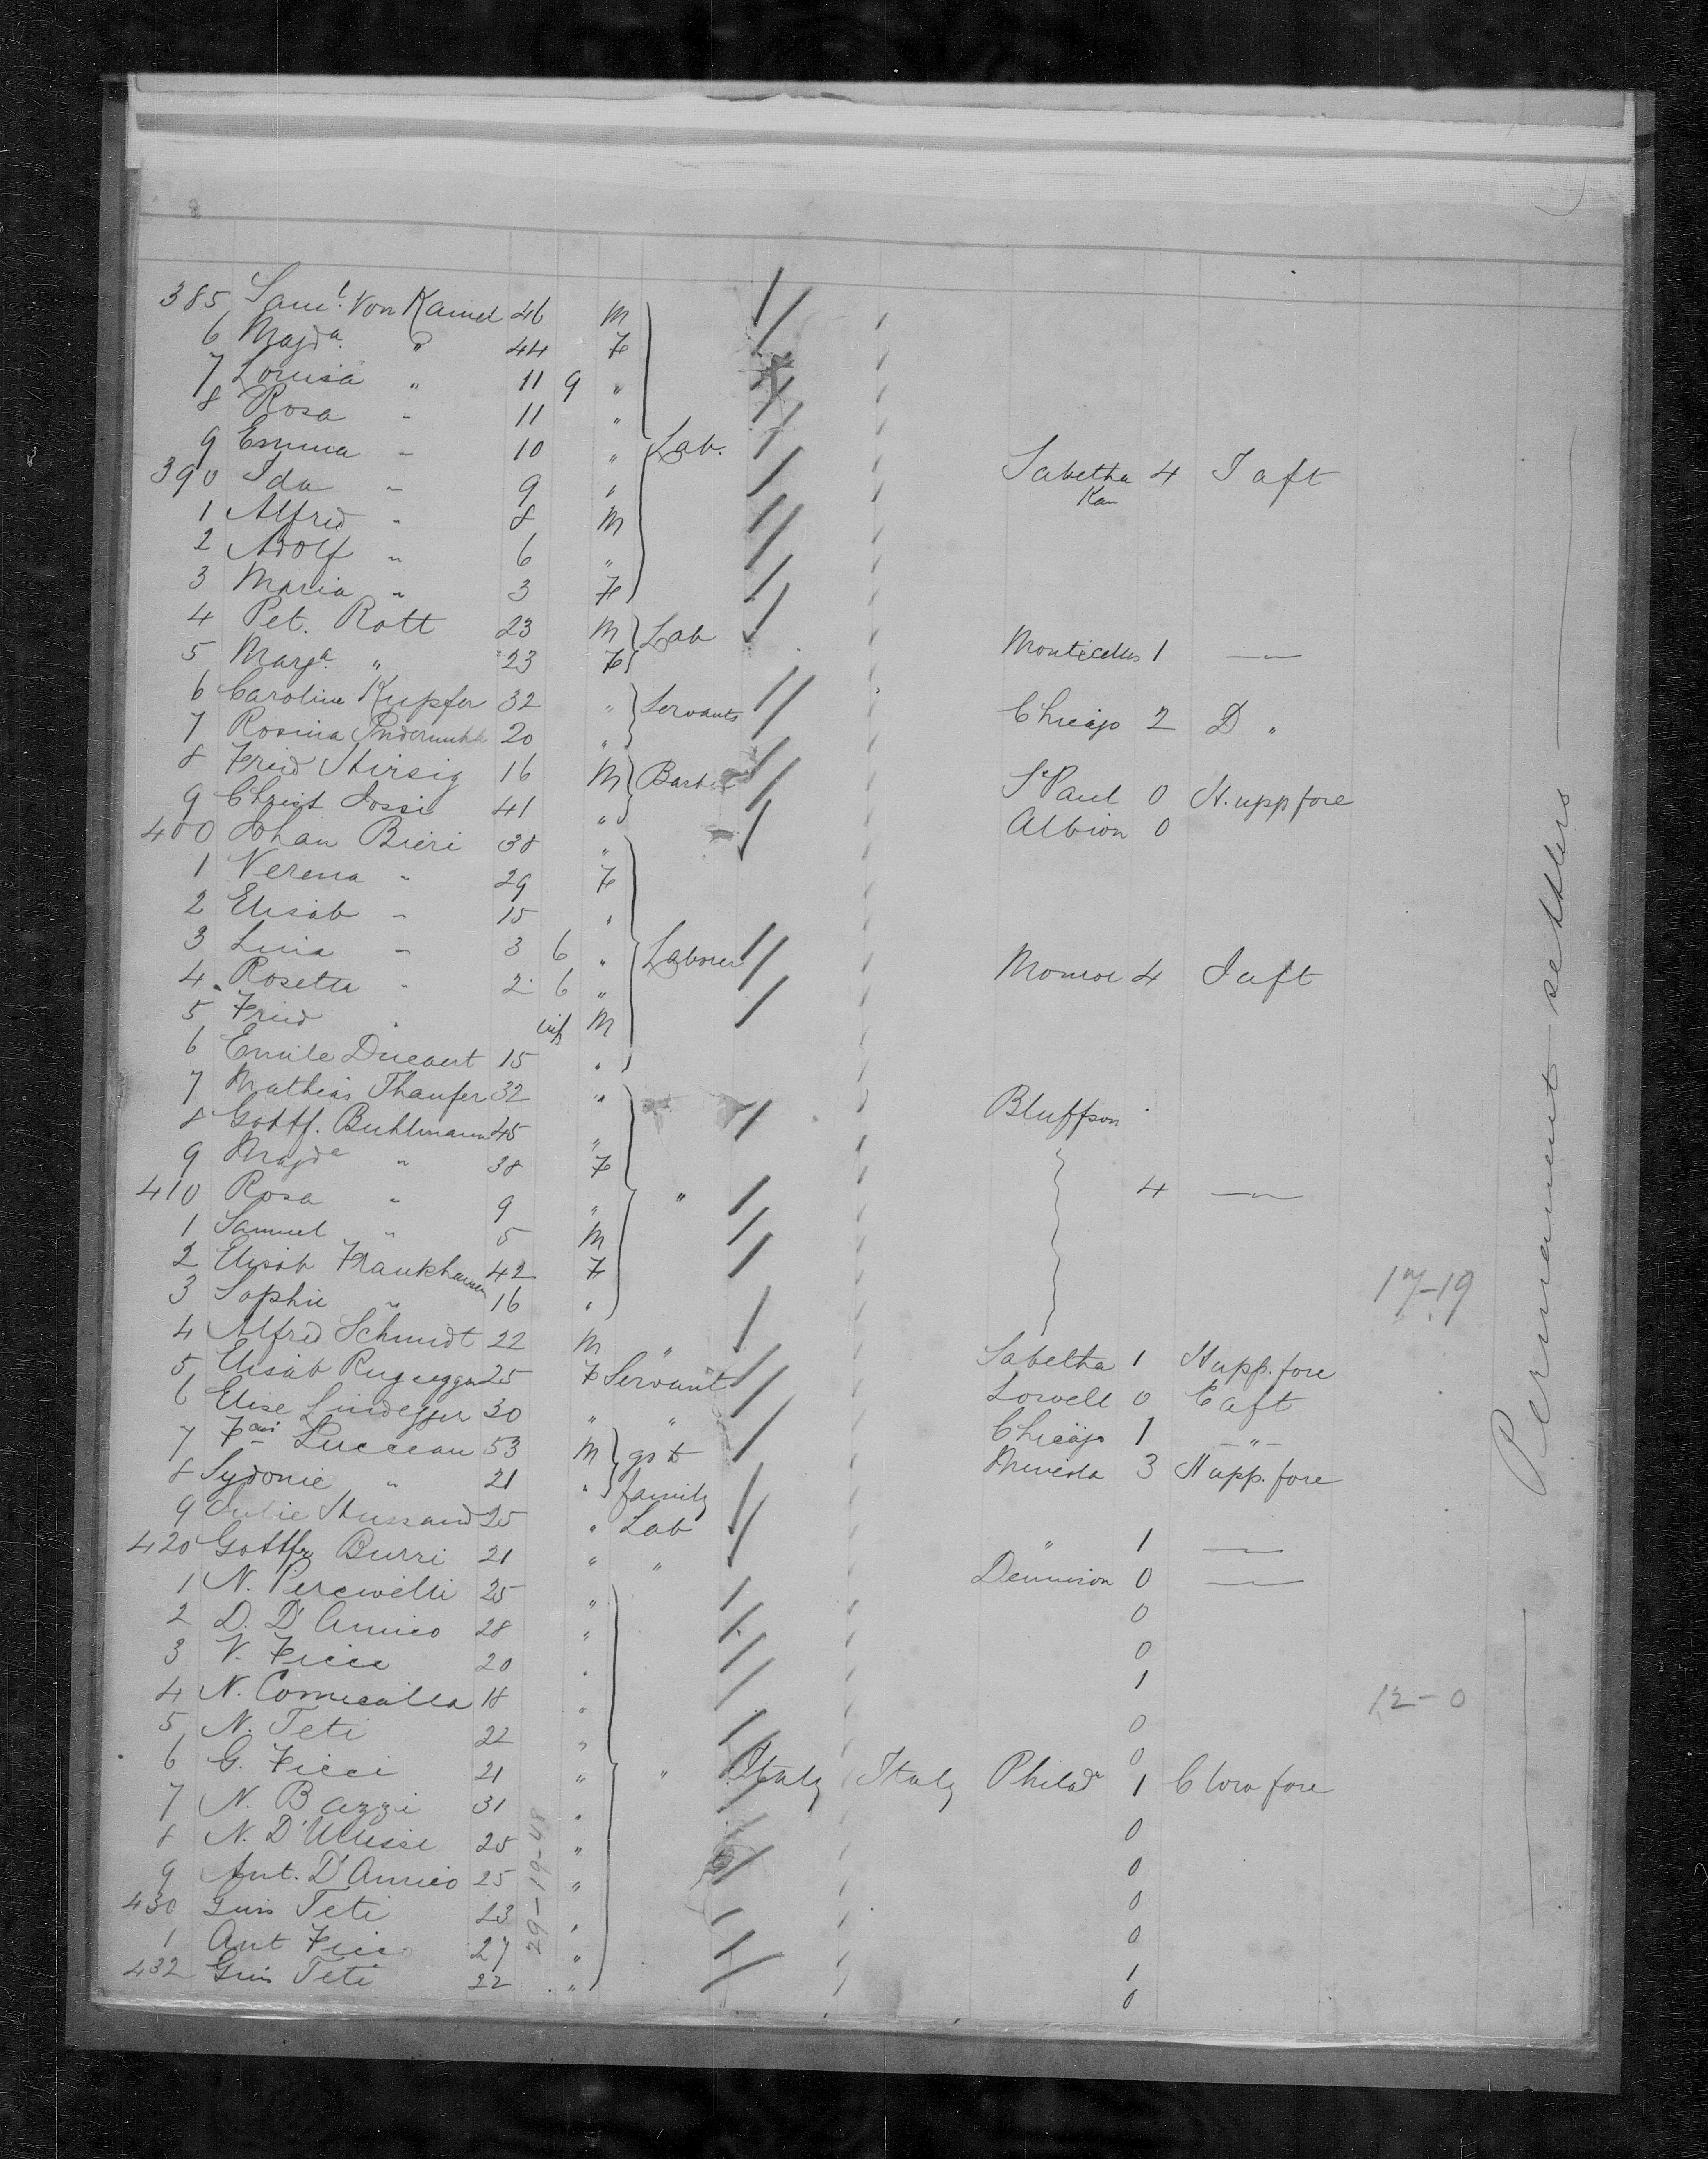 385 Sam<sup>l</sup>. Von Kamel 46 M
6 Magd<sup>a</sup>. " 44 F
7 Louisa " 11 9 "
8 Rosa " 11 "
9 Emma " 10 " Lab. Sabetha 4 J aft
Kan
390 Ida " 9 "
1 Alfred " 8 M
2 Adolf " 6 "
3 Maria " 3 F
4 Pet. Rott 23 M Lab Monticello 1 —"—
5 Marg<sup>a</sup>. " 23 F
6 Caroline Kupfer 32 " Servants Chicago 2 D "
7 Rosina 20 "
8 Fried Hirsig 16 M St Paul 0 H. upp fore
9 Christ Jossi 41 " Albion 0
400 Johan Bieri 38 "
1 Verena " 29 F
2 Elisab " 15 "
3 Lina " 3 6 " Laborer Monroe 4 J aft
4 Rosetta " 2 6 "
5 Fried " inf M
6 Emile 15 "
7 Mathias 32 " Bluffson
8 Gottf. Buhlmann 45 "
9 Magd<sup>a</sup> " 38 F
410 Rosa " 9 " " 4 —"—
1 Samuel " 5 M
2 Elisab Frankhauser 42 F
3 Sophie " 16 " 17-19
4 Alfred Schmidt 22 M " Sabetha 1 H upp. fore
5 Elisab Rugsegger 25 F Servant Lowell 0 E aft
6 Elise Lindegger 30 " " Chicago 1 —"—
7 53 M gst 3 H upp. fore
8 Sydonie " 21 " family
9 Julie 25 " Lab " 1 —"—
420 Gottfr Burri 21 " " Dennison 0 —"—
1 N. 25 " 0
2 D. D'Amico 28 " 0
3 V. Ficca 20 " 1
4 N. 18 " 0 12-0
5 N. Teti 22 " 0
6 G. Ficci 21 " " Italy Italy Philad<sup>a</sup> 1 C low fore
7 N. Bazzi 31 " 0
8 N. D'Ulisse 25 " 0
9 Ant. D'Amico 25 " 0
430 Guis Teti 23 " 0
1 Ant 27 " 1
432 Guis Teti 22 " 0
29-19-48
Permanent settlers